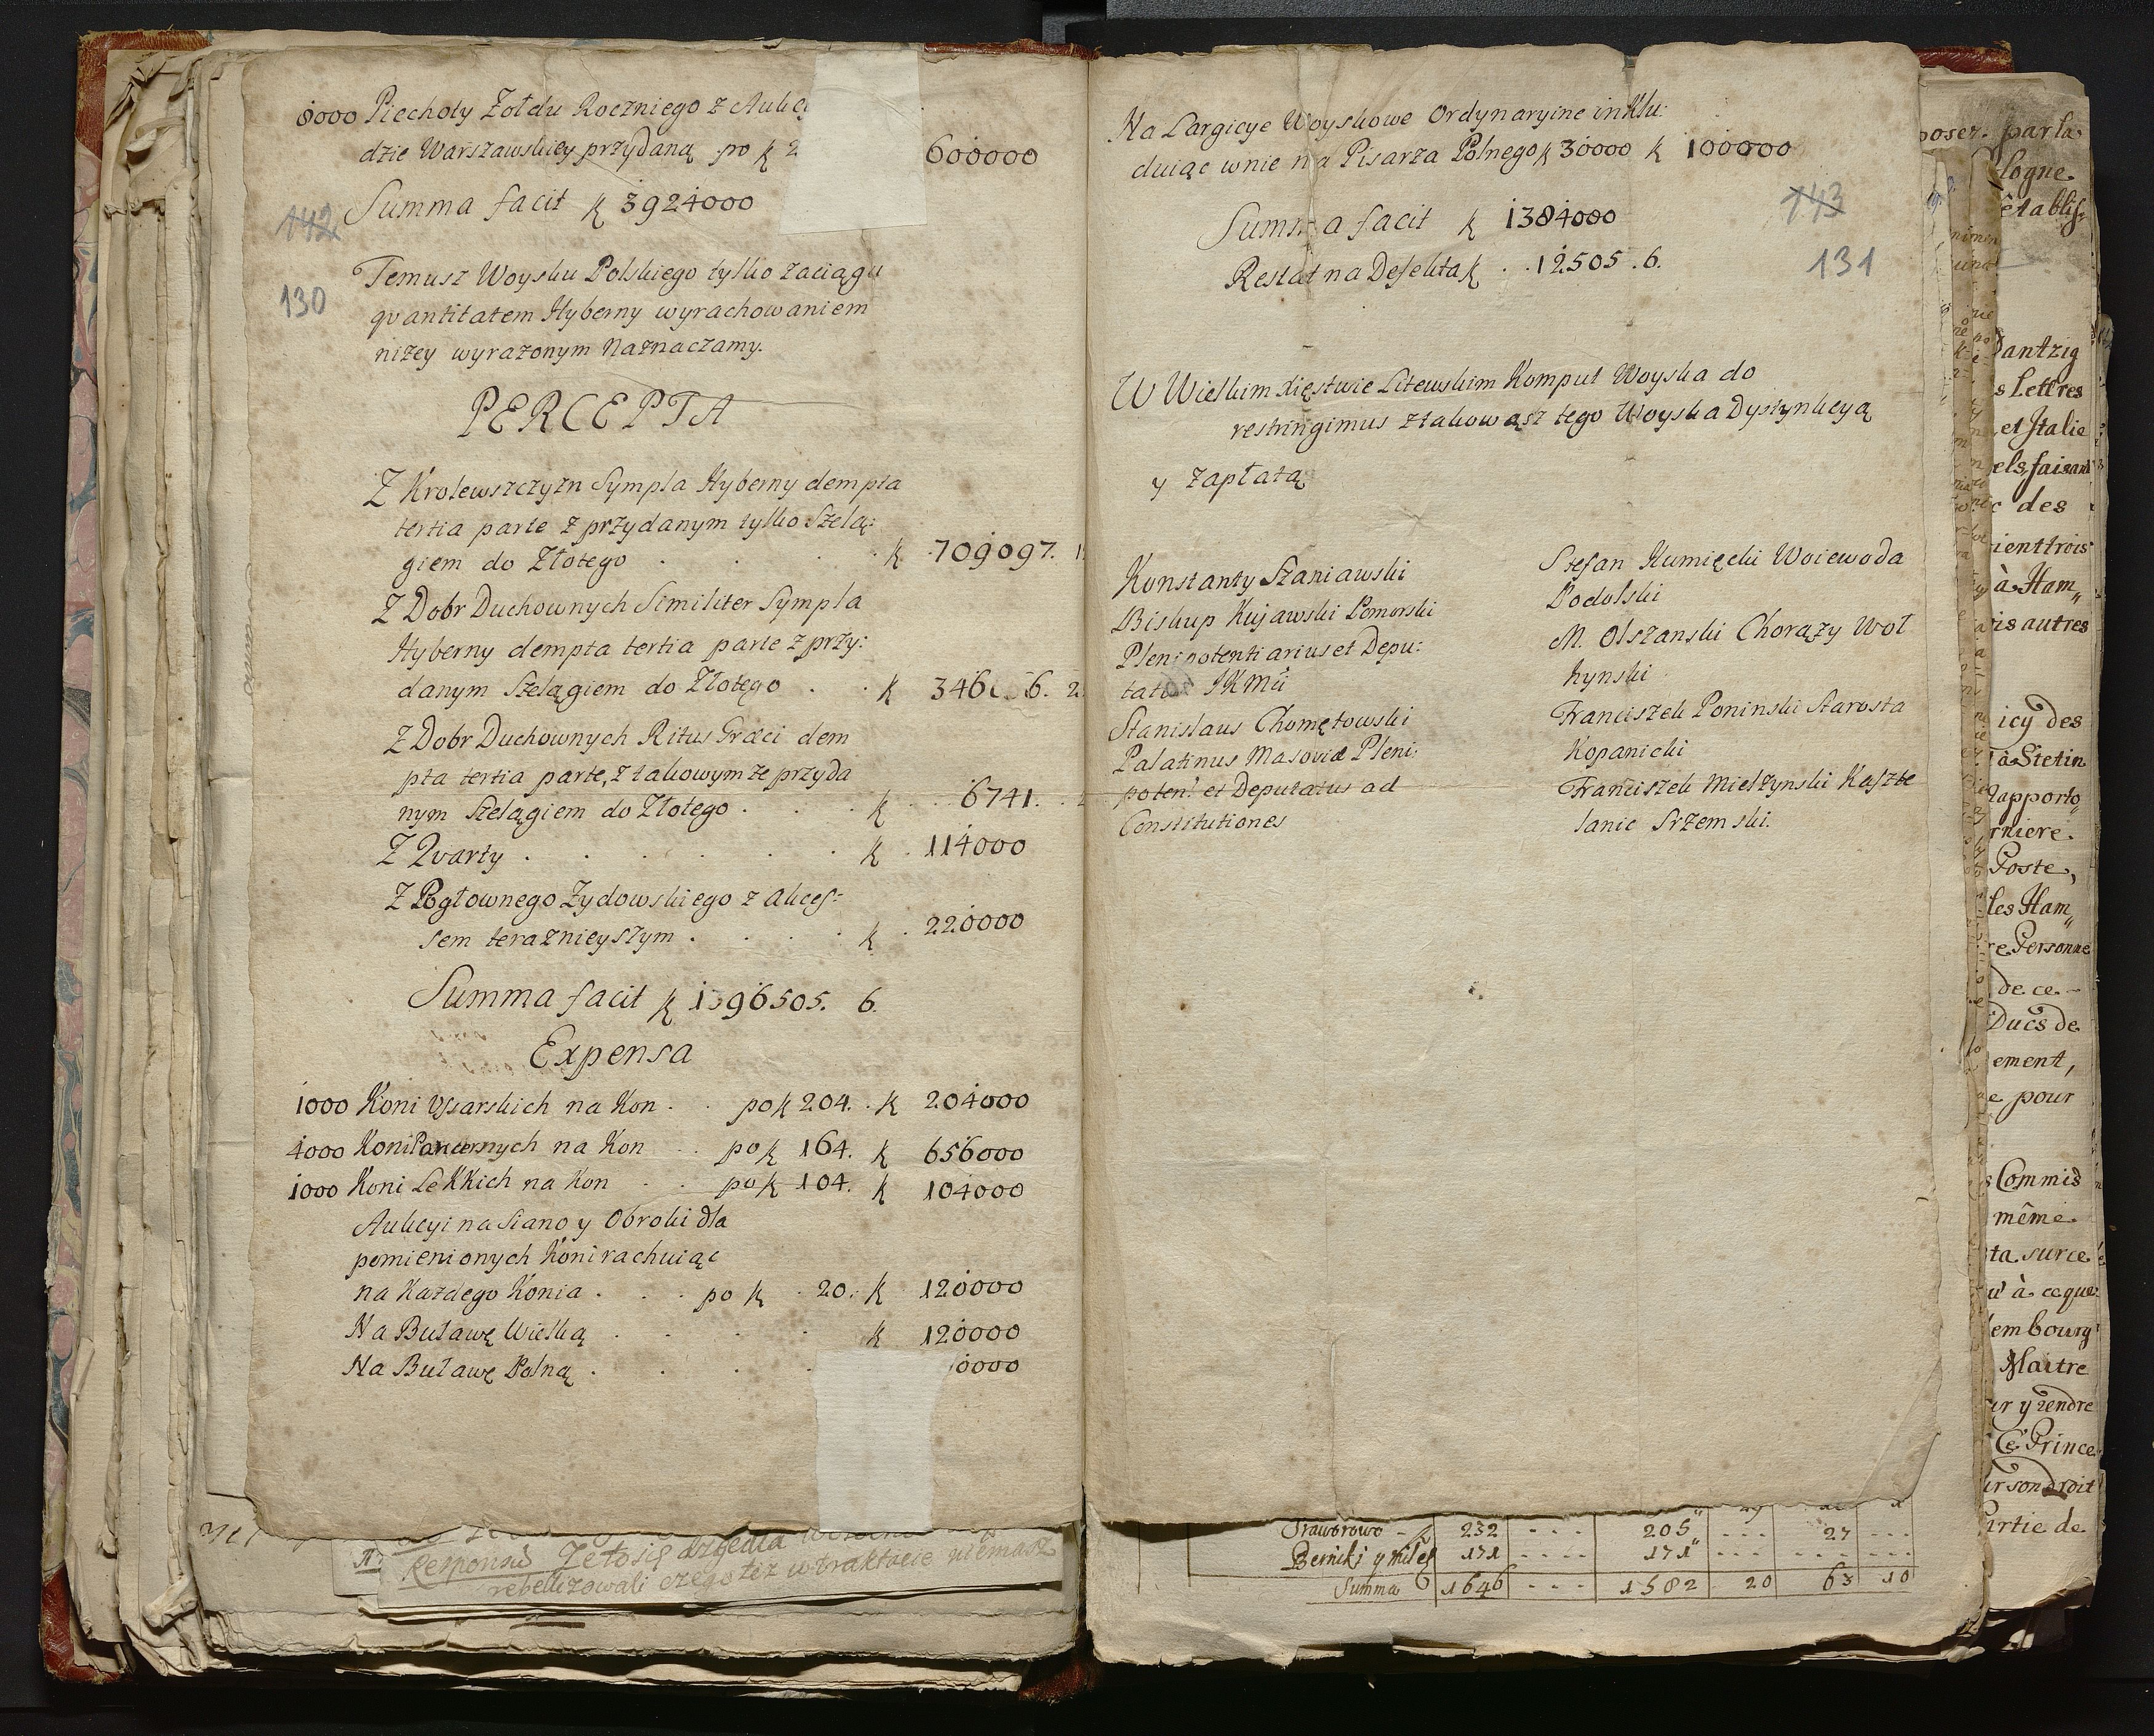 8000 Piechoty Zołdu Roczniego z Aukc
dzie Warszawskiey przydaną po ꝶ 2 600000
Summa facit ꝶ 3924000
142
130
Temusz Woysku Polskiego tylko zaciągu
qvantitatem Hyberny wyrachowaniem
niżey wyrażonym Naznaczamy.
PERCEPTA
Z Krolewszczyzn Sympla Hyberny dempta
tertia parte z przydanym tylko Szelą:
giem do Złotego . . . ꝶ 709097.
Z Dobr Duchownych Similiter Sympla
Hyberny dempta tertia parte z przy:
danym Szelągiem do Złotego . . ꝶ 346 6. 2
Z Dobr Duchownych Ritus Græci dem
pta tertia parte, z takowym ze przyda
nym Szelągiem do Złotego . . . ꝶ . . 6741.
Z Qvarty . . . . . . ꝶ . 114000
Z Pogłownego Zydowskiego z Akces:
sem teraznieyszym . . . . ꝶ . 220000
Summa facit ꝶ 1396505. 6.
Expensa
1000 Koni Usarskich na Kon . . po ꝶ 204. . ꝶ 204000
4000 Koni Pancernych na Kon . . po ꝶ 164. ꝶ 656000
1000 Koni LeKKich na Kon . . po ꝶ 104. ꝶ 104000
Aukcyi na Siano y Obroki dla
pomienionych Koni rachuiąc
na Kazdego Konia . . . po ꝶ . 20. ꝶ 120000
Na Buławę Wielką . . . . ꝶ 120000
Na Buławę Polną . . . . 0000
Na Largicye Woyskowe Ordynaryine inKlu:
duiąc wnie na Pisarza Polnego ꝶ 30000 ꝶ 100000
143
Summa facit ꝶ 1384000
131
Restat na Defekta ꝶ . . 12505 . 6.
W Wielkim Xięstwie Litewskim Komput Woyska do
restringimus z takowąsz tego Woyska Dystynkcyą
y zapłatą
Konstanty Szaniawski
Biskup Kujawski Pomorski
Plenipotentiarius et Depu:
tat JKMći
Stanislaus Chomętowski
Palatinus Masoviæ Pleni:
potent et Deputatus ad
Constitutiones
Stefan Humięcki Woiewoda
Podolski
M. Olszanski Chorąży Woł
hynski
Franciszek Poninski Starosta
Kopanicki
Franciszek Mielzynski Kaszte
lanic Srzemski.
poser. par la
logne.
établis
Dantzig
s Lettres
et Italie
els, faisant
des
ient trois
à Ham„
is autres
icy des
à Stetin
Rapporto„
rniere.
Poste,
les Ham„
re Personne
de ce
Ducs de
ement,
e pour
s Commis
même
ta surce
u' à ceque
embourg
Maitre
ur y rendre
Ce Prince
ur son droit
artie de
Responsio Ze to się
rebellizowali czego tez w traktacie niemasz
232 - - - 205 - - - 27 - - -
171 - - - - 171 - - - - - - - - -
Summa 1646 - - - 1582 20 63 10